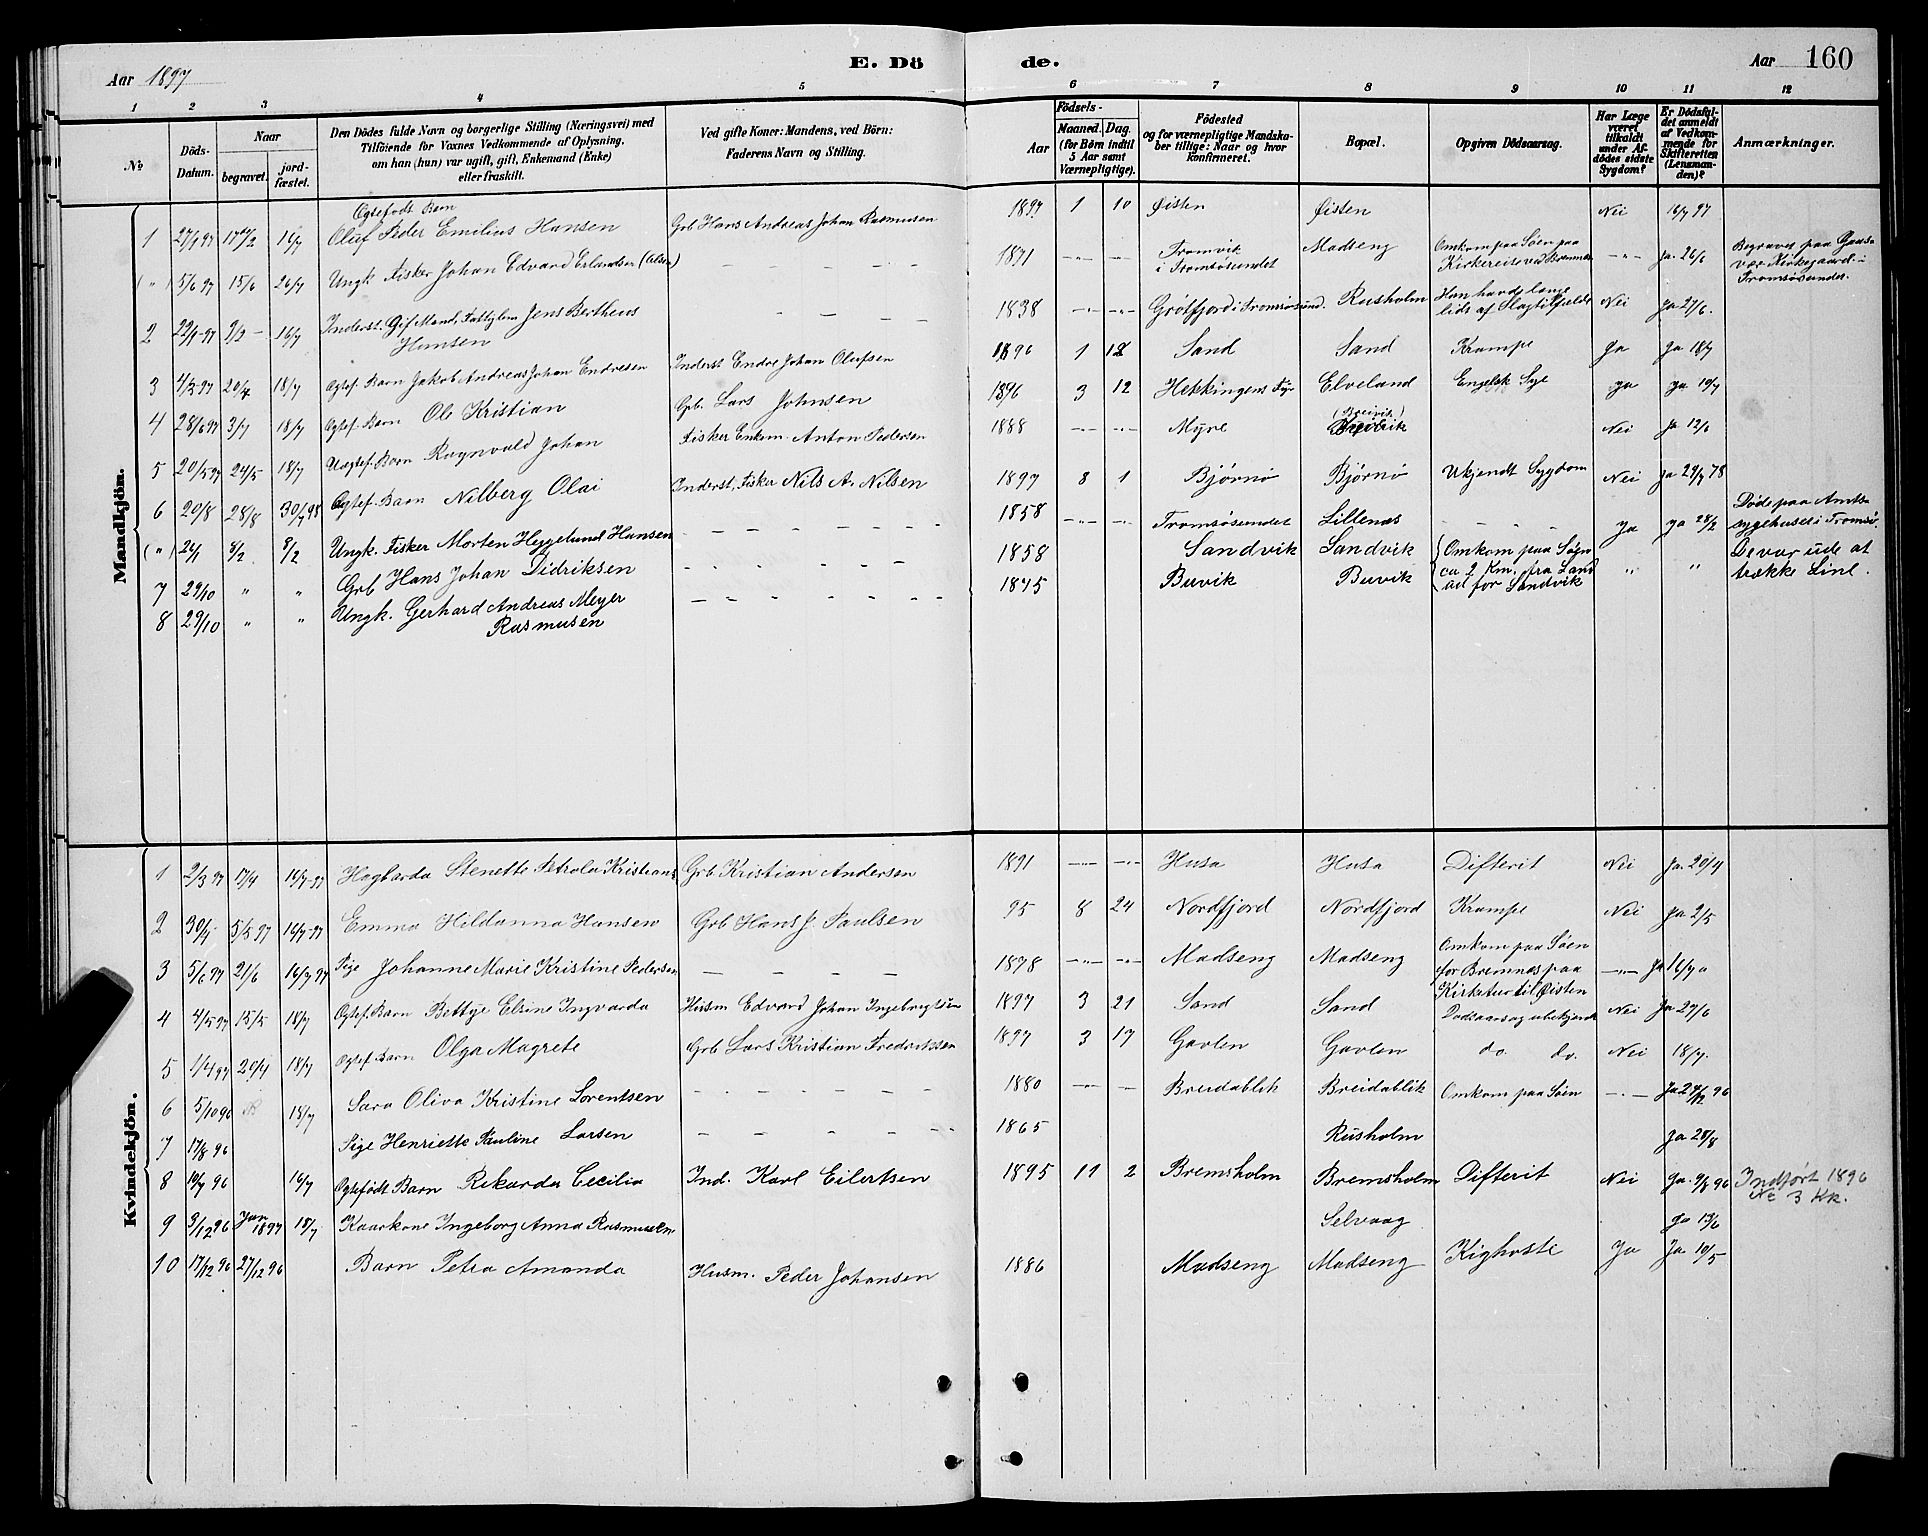 Aar 1897
E. Dö
de.
Aar 160
1 2 3 4 5 6 7 8 9 10 11 12
No
Döds-Datum.
Naar
begravet.
jordfæstet.
Den Dödes fulde Navn og borgerlige Stilling (Næringsvei) med
Tilföiende for Voxnes Vedkommende af Oplysning,
om han (hun) var ugift, gift, Enkemand (Enke)
eller fraskilt.
Ved gifte Koner: Mandens, ved Börn:
Faderens Navn og Stilling.
Födsels-
Aar
Maaned. Dag.
(for Börn indtil
5 Aar samt
Værnepligtige).
Födested
og for værnepligtige Mandskaber tillige: Naar og hvor
konfirmeret.
Bopæl.
Opgiven Dödsaarsag.
Har Læge
været
tilkaldt
under Afdödes sidste
Sygdom?
Er Dödsfaldet anmeldt
af Vedkommende for
Skifteretten
(Lensmanden)?
Anmærkninger.
Mandkjön.
1 27/1 97 17/2 16/7 Ogtefødt Barn Oluf Peder Emilius Hansen Grb Hans Andreas Johan Rasmusen 1897 1 10 Øisten Øisten Nei 16/7 97
(") 5/6 97 15/6 26/7 Ungk Fisker Johan Edvard Erlandsen (Olsen) - - - - - 1871 -"- -"- Tromvik i Tromsøsundet Madseng Omkom paa Søen paa Kirkereise ved Bremnes -"- Ja 26/6 Begraves paa Gaasvær Kirkegaard i Tromsøsundet.
2 22/1-97 7/2 - 16/7 Inderst. Gif Mand, Fattiglem Jens Bertheus Hansen - - - - 1838 -"- -"- Grøtfjord i Tromsøsund. Rusholm Han havde længe lidt af Slagtilfælde Nei Ja 27/6.
3 4/3-97 20/4 18/7 Ogtef. Barn Jakob Andreas Johan Endresen Inderst Endre Johan Olufsen 1896 1 12 Sand Sand Krampe Ja Ja 18/7
4 28/6 97 3/7 18/7 Ogtef. Barn Ole Kristian Grb. Lars Johnsen 1896 3 12 Hekkingens Fyr Elveland Engelsk Syge Ja Ja 19/7
5 20/5 97 24/5 18/7 Uogtef. Barn Ragnvald Johan Fisker Enkem. Anton Pedersen 1888 -"- -"- Myre (Breivik) Breivik Nei Ja 12/6
6 20/8 28/8 30/7 98 Ogtef. Barn Nilberg Olai Inderst. Fisker Nils A. Nilsen 1897 8 1 Bjørnø Bjørnø Ukjendt Sygdom Nei Ja 29/7 78
(") 26/1 8/2 8/2 Ungk. Fisker Morten Heggelund Hansen - - - - - - 1858 -"- -"- Tromsøsundet Lillenes - - - Ja Ja 28/2 Døde paa Amtssygehuset i Tromsø.
7 29/10 " " Grb Hans Johan Didriksen - - - - - - 1858 Sandvik Sandvik Omkom paa Søen ca 2 Km. fra Land ud for Sandvik " " De var ude at trække Line.
8 29/10 " " Ungk. Gerhard Andreas Meyer Rasmusen - - - - - - 1875 Buvik Buvik
Kvindekjön.
1 2/3 97 17/4 16/7-97 Hagbarda Stenette Petrola Kristians Grb Kristian Andersen 1891 -"- -"- Husa Husa Difterit Nei Ja. 20/4
2 30/4 5/5 97 16/7-97 Emma Hildanna Hansen Grb Hans J. Paulsen 95 8 24 Nordfjord Nordfjord Krampe Nei Ja 2/5
3 5/6 97 21/6 16/7 97 Pige Johanne Marie Kristine Pedersen - - - - 1878 -"- -"- Madseng Madseng Omkom paa Søen for Bremnes paa Kirketur til Øisten -"- Ja 16/7
4 4/5 97 15/5 18/7 Ogtef. Barn Bettye Elsine Ingvarda Husm Edvard Johan Ingebrigtsen 1897 3 21 Sand Sand Dødsaarsag ubekjendt Nei Ja 27/6
5 1/4 97 20/4 18/7 Ogtef. Barn Olga Magrete Grb Lars Kristian Fredriksen 1897 3 17 Gavlen Gavlen do. do. Nei 18/7.
6 5/10 96 18/7 Sara Oliva Kristine Lorentsen - - - - - 1880 -"- -"- Breidablik Breidablik Omkom paa Søen -"- Ja 27/12 96
7 17/8 96 Pige Henriette Pauline Larsen - - - - - 1865 Rusholm Ja 28/8
8 19/7 96 16/7 Ogtefødt Barn Rikarda Cecilia Ind. Karl Eilertsen 1895 11 2 Bremsholm Bremsholm Difterit Nei Ja. 9/8 96 Indført 1896 No 3 KK.
9 3/12 96 Jan 1897 18/7 Kaarkone Ingeborg Anna Rasmusen Selvaag Ja 13/6
10 17/12 96 27/12 96 Barn Petra Amanda Husm. Peder Johansen 1886 Madseng Madseng Kighoste Ja Ja 10/5